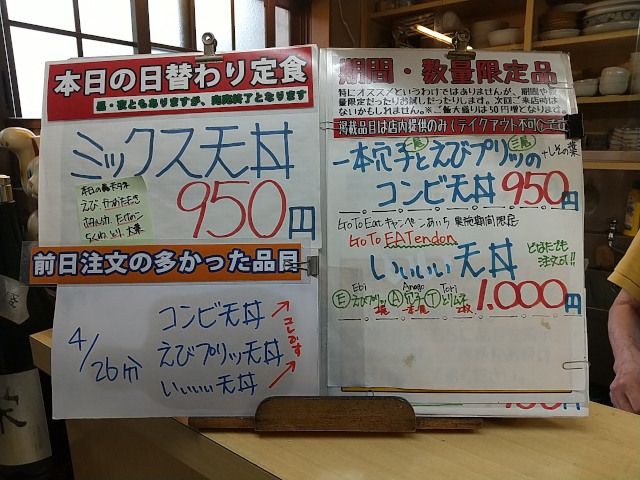 本日の日替わり定食
昼・夜ともありますが、売切終了となります
ミックス天丼
本日の天ネタ
えび
950円
前日注文の多かった品目
4/26分
コンビ天丼
えびプリッツ天丼
いいいい天丼
コレです
期間・数量限定品
特にオススメというわけではありませんが、期間や数
量限定だったりお試しだったりします。次回ご来店時は
ないかもしれません。※ご飯大盛りは50円増となります
掲載品目は店内提供のみ(テイクアウト不可)
一本穴子とえびプリッツの
コンビ天丼 950円
GoToEatキャンペーンあいち 実施期間限定
GoTo EATendon
いいいい天丼
どなたでも
注文可!!
Ebi Anago Tori
Ⓔえびプリッツ Ⓐ穴子 Ⓣとりムネ
2尾 一本 2枚
1,000円
円